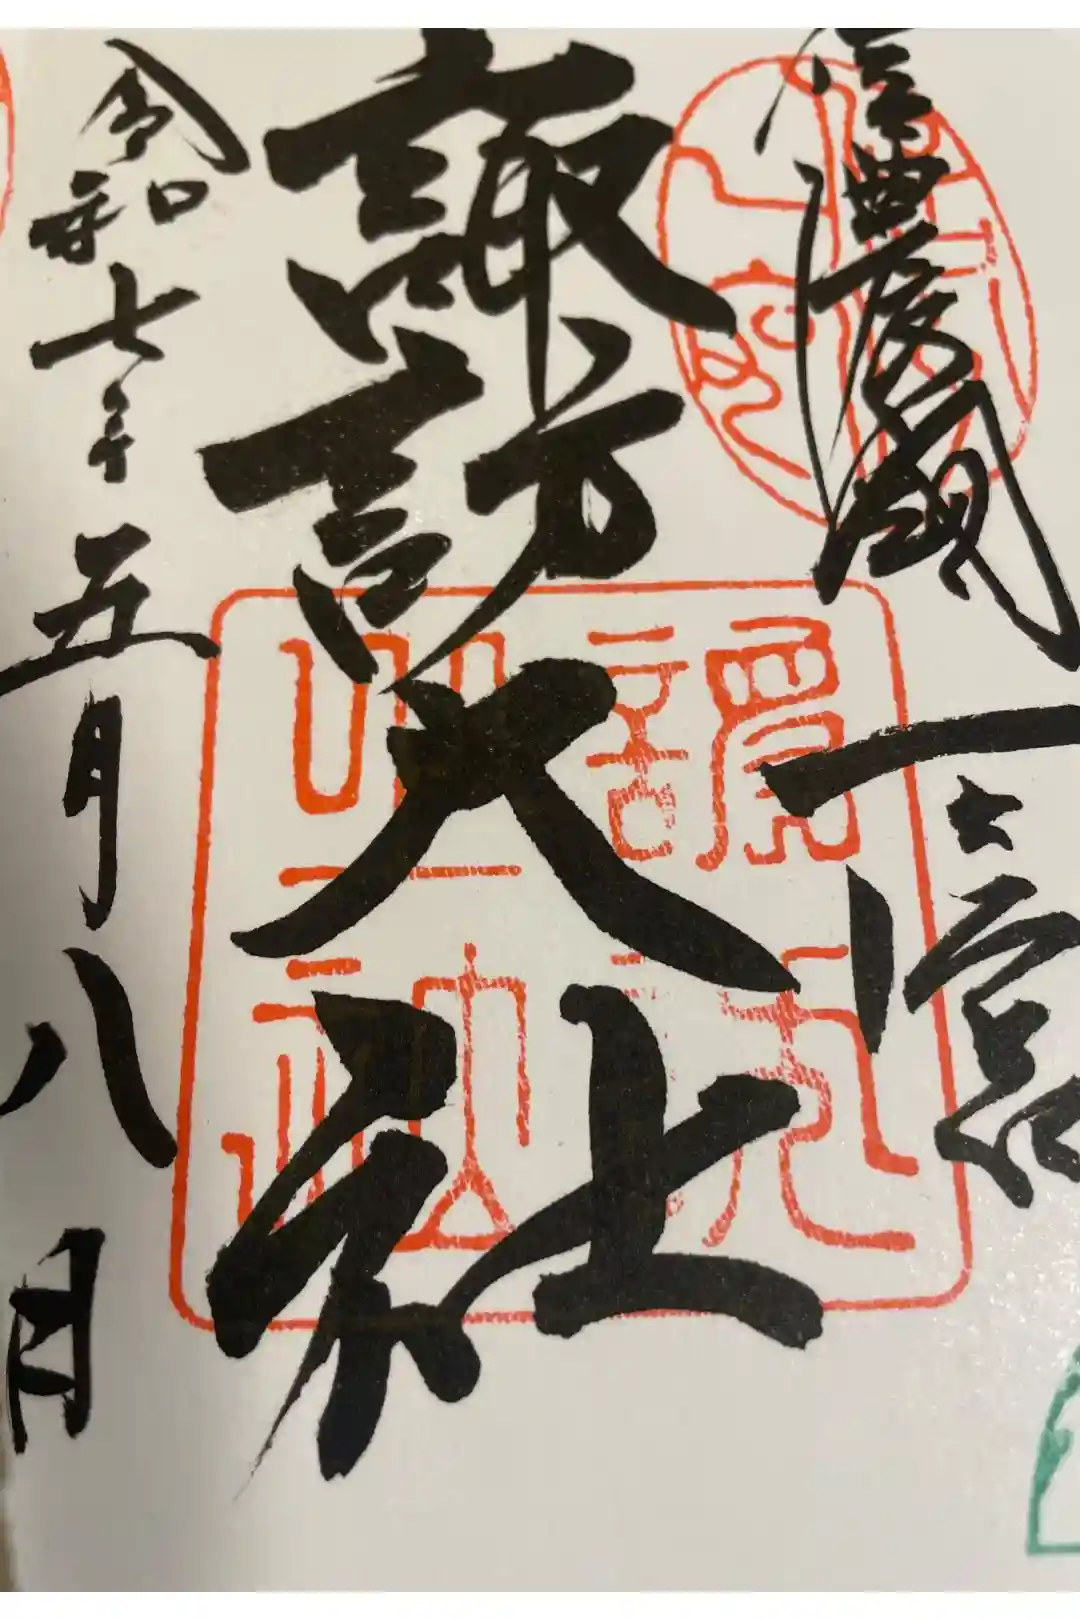 信濃國一之宮
諏訪大社
令和七年五月八日